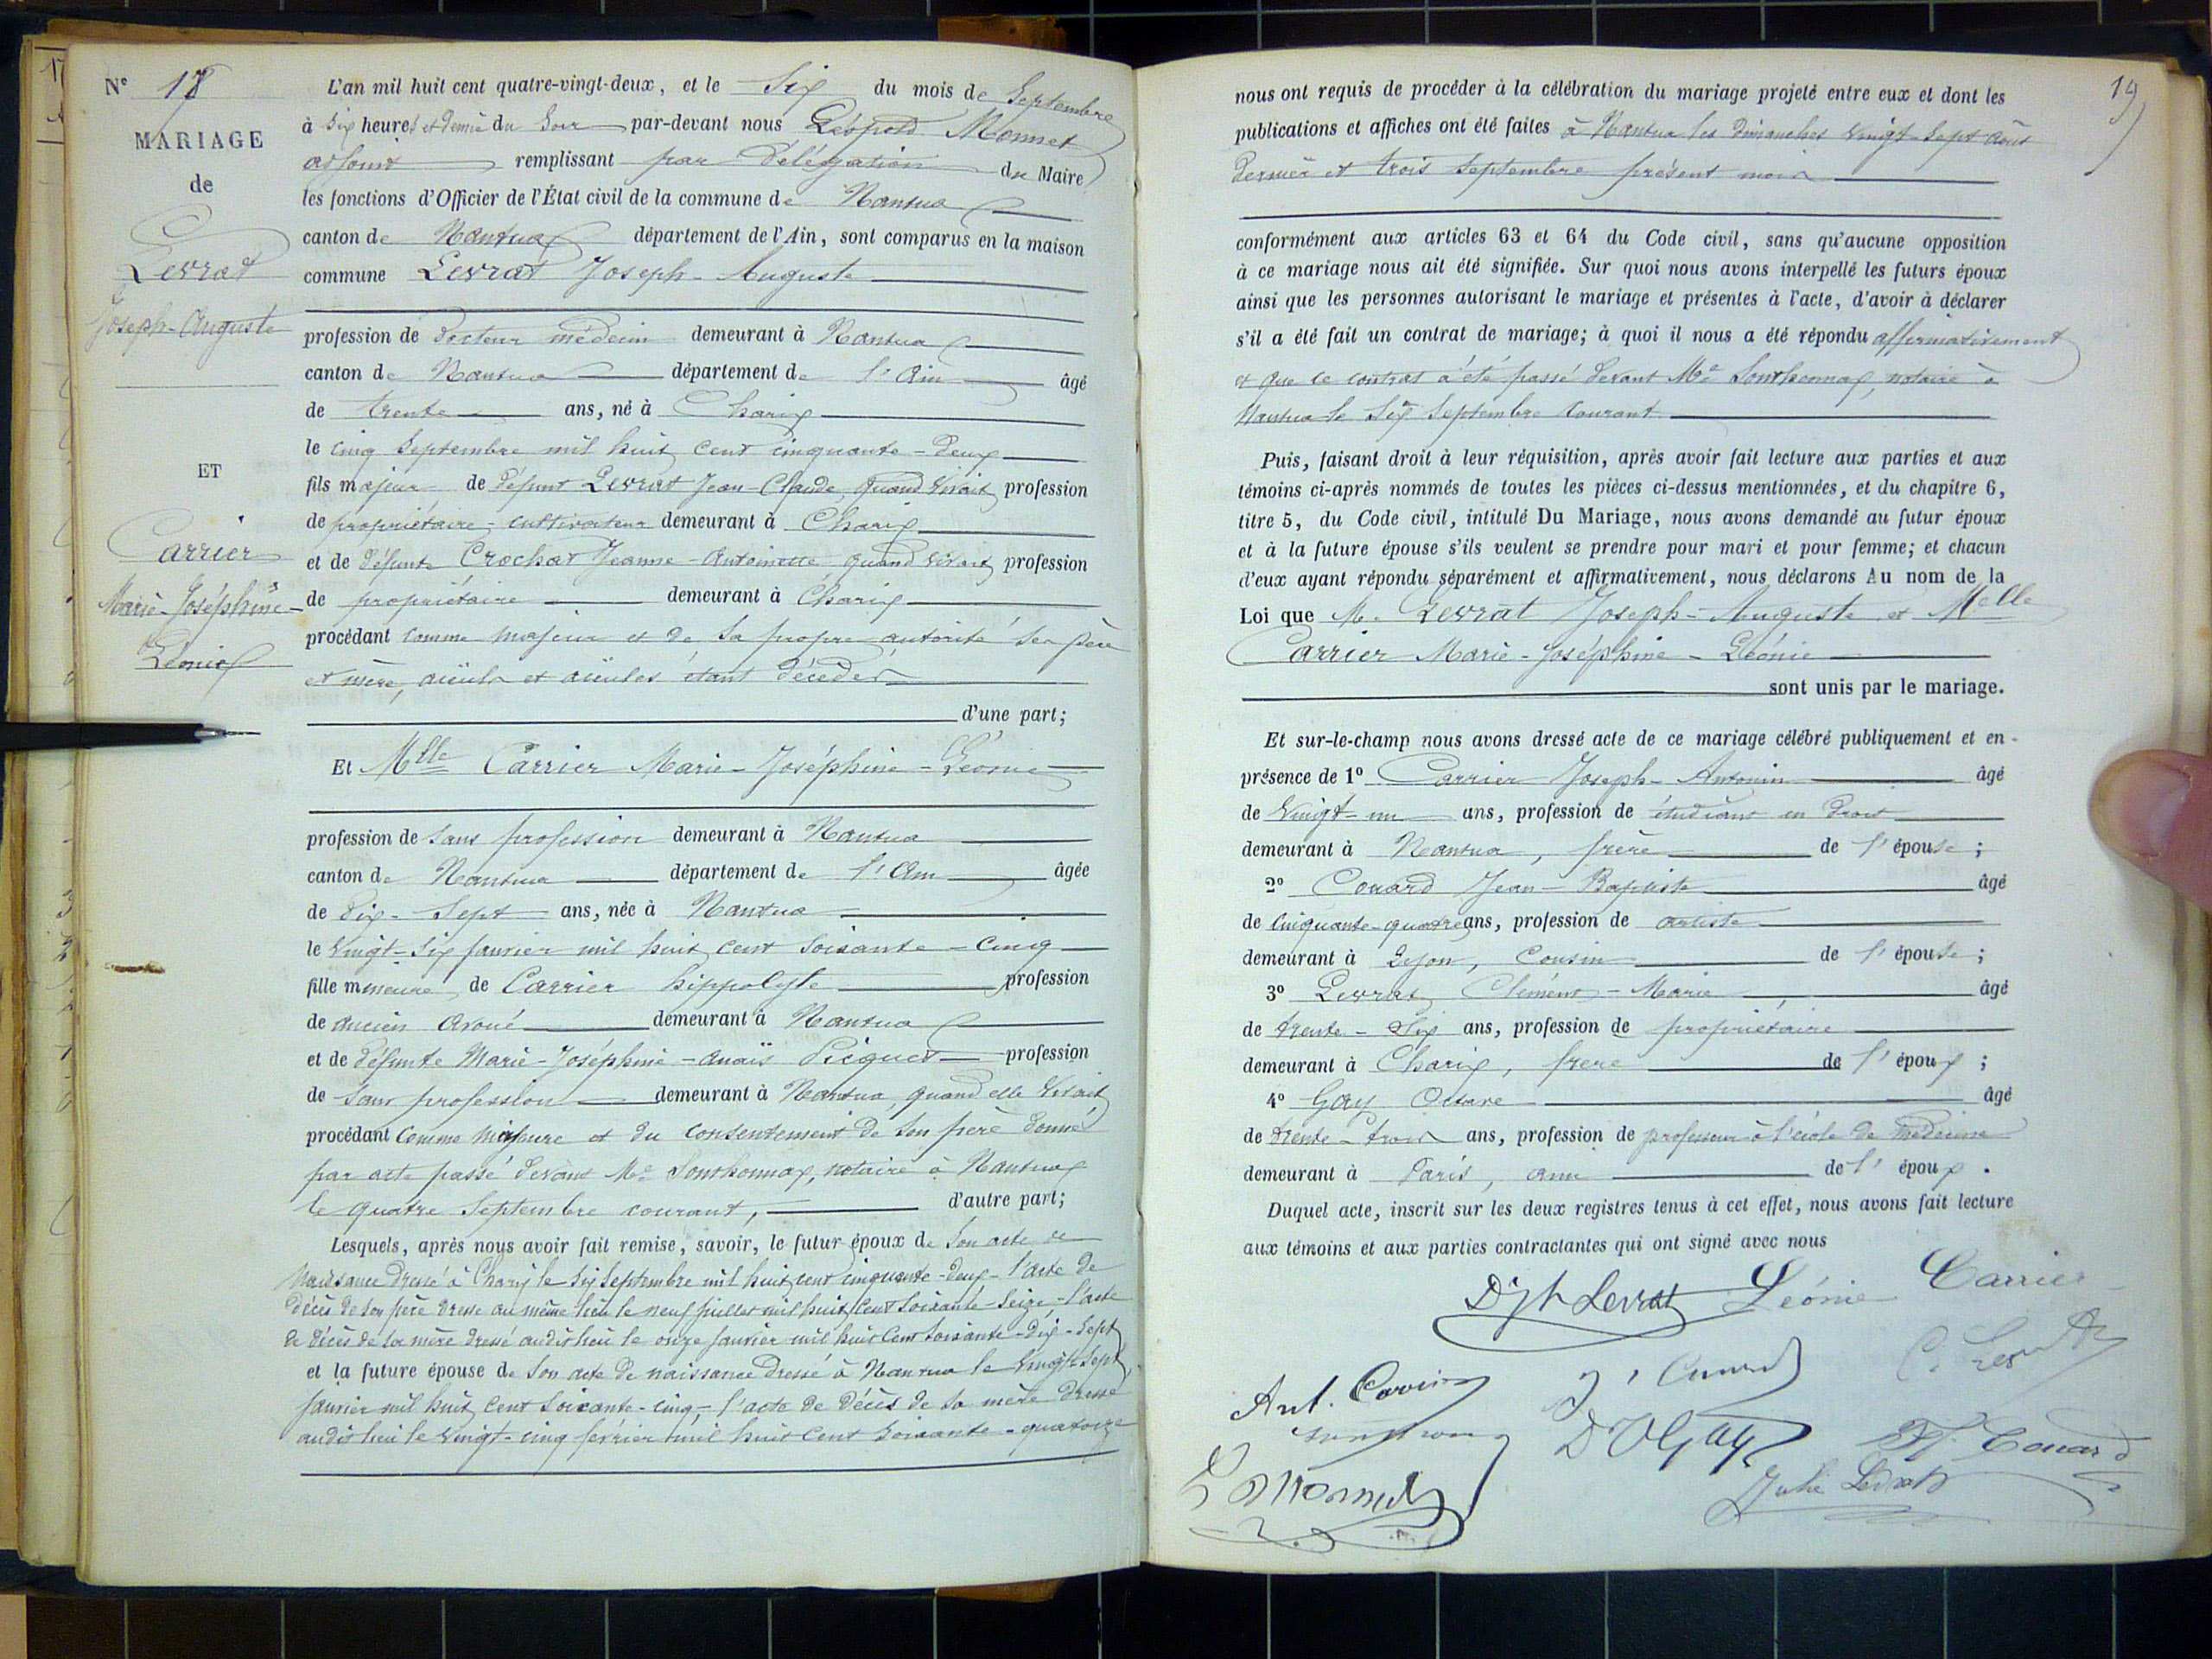 N° 18
MARIAGE
de
Levrat
Joseph-Auguste
ET
Carrier
Marie-Joséphine-
Léonie
L'an mil huit cent quatre-vingt-deux, et le Six du mois de Septembre
à Six heures et demie du Soir par-devant nous Léopold Monnet
adjoint remplissant par délégation du Maire
les fonctions d'Officier de l'État civil de la commune de Nantua
canton de Nantua département de l'Ain, sont comparus en la maison
commune Levrat Joseph-Auguste
profession de docteur médecin demeurant à Nantua
canton de Nantua département de l'Ain âgé
de trente ans, né à Charix
le cinq Septembre mil huit cent cinquante-deux
fils majeur de défunt Levrat Jean-Claude, quand vivait, profession
de propriétaire-cultivateur demeurant à Charix
et de défunte Crochat Jeanne-Antoinette quand vivait, profession
de propriétaire demeurant à Charix
procédant comme majeur et de sa propre autorité ses père
et mère, aïeuls et aïeules étant décédés
d'une part;
Et Mlle Carrier Marie-Joséphine-Léonie
profession de sans profession demeurant à Nantua
canton de Nantua département de l'Ain âgée
de dix-sept ans, née à Nantua
le vingt-six janvier mil huit cent soixante-cinq
fille mineure de Carrier hippolyte profession
de ancien avoué demeurant à Nantua
et de défunte Marie-Joséphine-anaïs Picquet profession
de sans profession demeurant à Nantua, quand elle vivait,
procédant comme mineure et du consentement de son père donné
par acte passé devant Me Sonthonnax, notaire à Nantua
le quatre Septembre courant, d'autre part;
Lesquels, après nous avoir fait remise, savoir, le futur époux de son acte de
naissance dressé à Charix le six Septembre mil huit cent cinquante-deux - l'acte de
décès de son père dressé au même lieu le neuf juillet mil huit cent soixante-seize, - l'acte
de décès de sa mère dressé audit lieu le onze janvier mil huit cent soixante-dix-sept
et la future épouse de son acte de naissance dressé à Nantua le vingt-sept
janvier mil huit cent soixante-cinq, - l'acte de décès de sa mère dressé
audit lieu le vingt-cinq février mil huit cent soixante-quatorze
19
nous ont requis de procéder à la célébration du mariage projeté entre eux et dont les
publications et affiches ont été faites à Nantua les dimanches vingt-sept août
dernier et trois Septembre présent mois
conformément aux articles 63 et 64 du Code civil, sans qu'aucune opposition
à ce mariage nous ait été signifiée. Sur quoi nous avons interpellé les futurs époux
ainsi que les personnes autorisant le mariage et présentes à l'acte, d'avoir à déclarer
s'il a été fait un contrat de mariage; à quoi il nous a été répondu affirmativement
et que ce contrat a été passé devant Me Sonthonnax, notaire à
Nantua le Six Septembre courant
Puis, faisant droit à leur réquisition, après avoir fait lecture aux parties et aux
témoins ci-après nommés de toutes les pièces ci-dessus mentionnées, et du chapitre 6,
titre 5, du Code civil, intitulé Du Mariage, nous avons demandé au futur époux
et à la future épouse s'ils veulent se prendre pour mari et pour femme; et chacun
d'eux ayant répondu séparément et affirmativement, nous déclarons Au nom de la
Loi que M. Levrat Joseph-Auguste et Melle
Carrier Marie-Joséphine-Léonie
sont unis par le mariage.
Et sur-le-champ nous avons dressé acte de ce mariage célébré publiquement et en
présence de 1° Carrier Joseph-Antonin âgé
de vingt-un ans, profession de étudiant en droit
demeurant à Nantua, frère de l'épouse;
2° Couard Jean-Baptiste âgé
de cinquante-quatre ans, profession de artiste
demeurant à Lyon, cousin de l'épouse;
3° Levrat Clément-Marie âgé
de trente-six ans, profession de propriétaire
demeurant à Charix, frère de l'époux;
4° Gay Octave âgé
de trente-trois ans, profession de professeur à l'école de médecine
demeurant à Paris, ami de l'époux.
Duquel acte, inscrit sur les deux registres tenus à cet effet, nous avons fait lecture
aux témoins et aux parties contractantes qui ont signé avec nous
Levrat Léonie Carrier
Ant. Carrier
C. Levrat
D'OGay
Couard
L Monnet
Julie Levrat